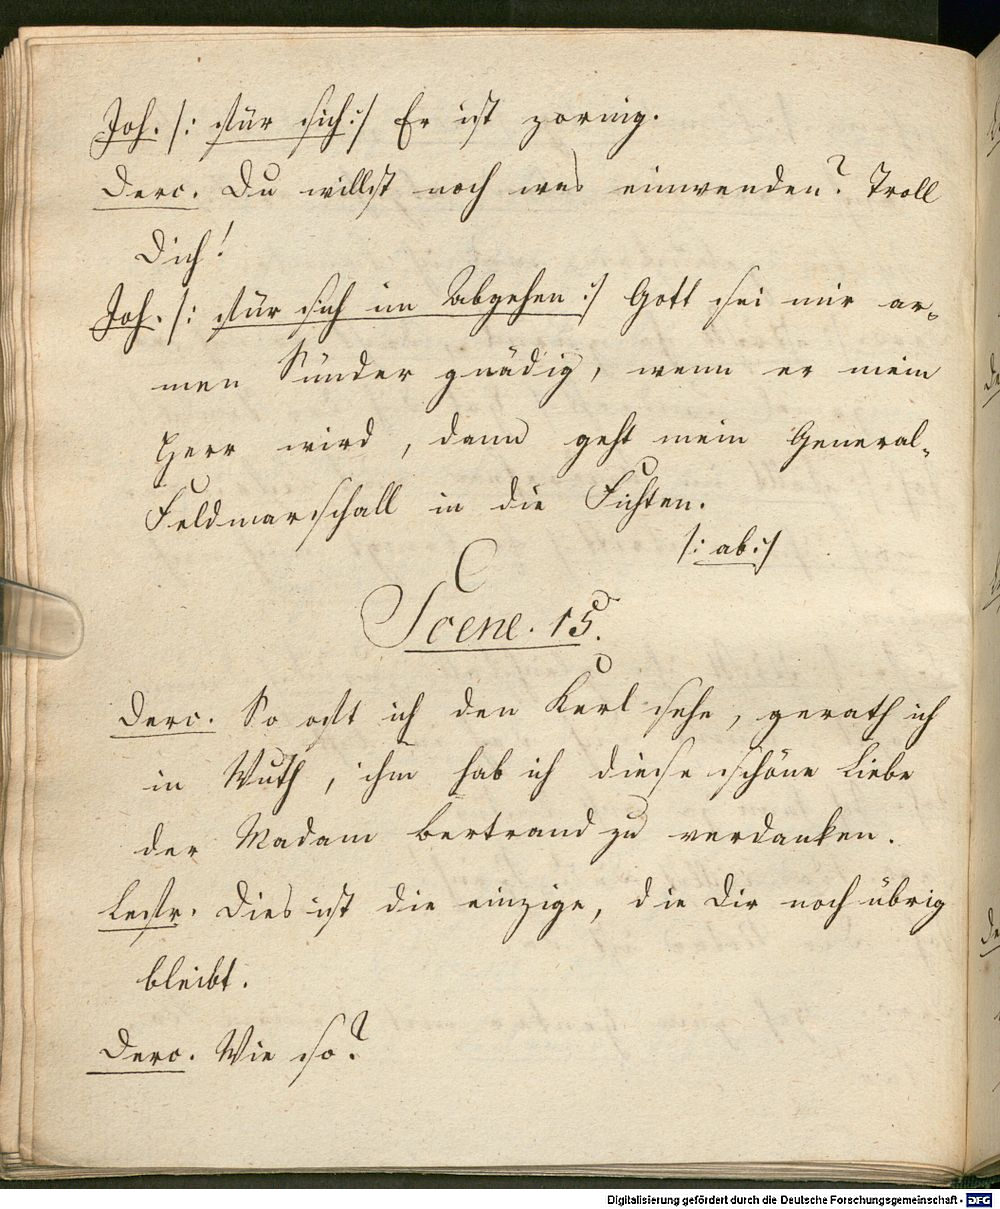 Joh. /: für sich :/ Er ist zornig.
Derc. Du willst noch was einwenden? Troll
Dich!
Joh. /: für sich im Abgehen :/ Gott sei mir ar-
men Sünder gnädig, wenn er mein
Herr wird, dann geht mein General-
Feldmarschall in die Fichten.
/: ab :/
Scene. 15.
Derc. So oft ich den Kerl sehe, gerath ich
in Wuth, ihm hab ich diese schöne Liebe
der Madam Bertrand zu verdanken.
Lestr. Dies ist die einzige, die Dir noch übrig
bleibt.
Derc. Wie so?
Digitalisierung gefördert durch die Deutsche Forschungsgemeinschaft - DFG